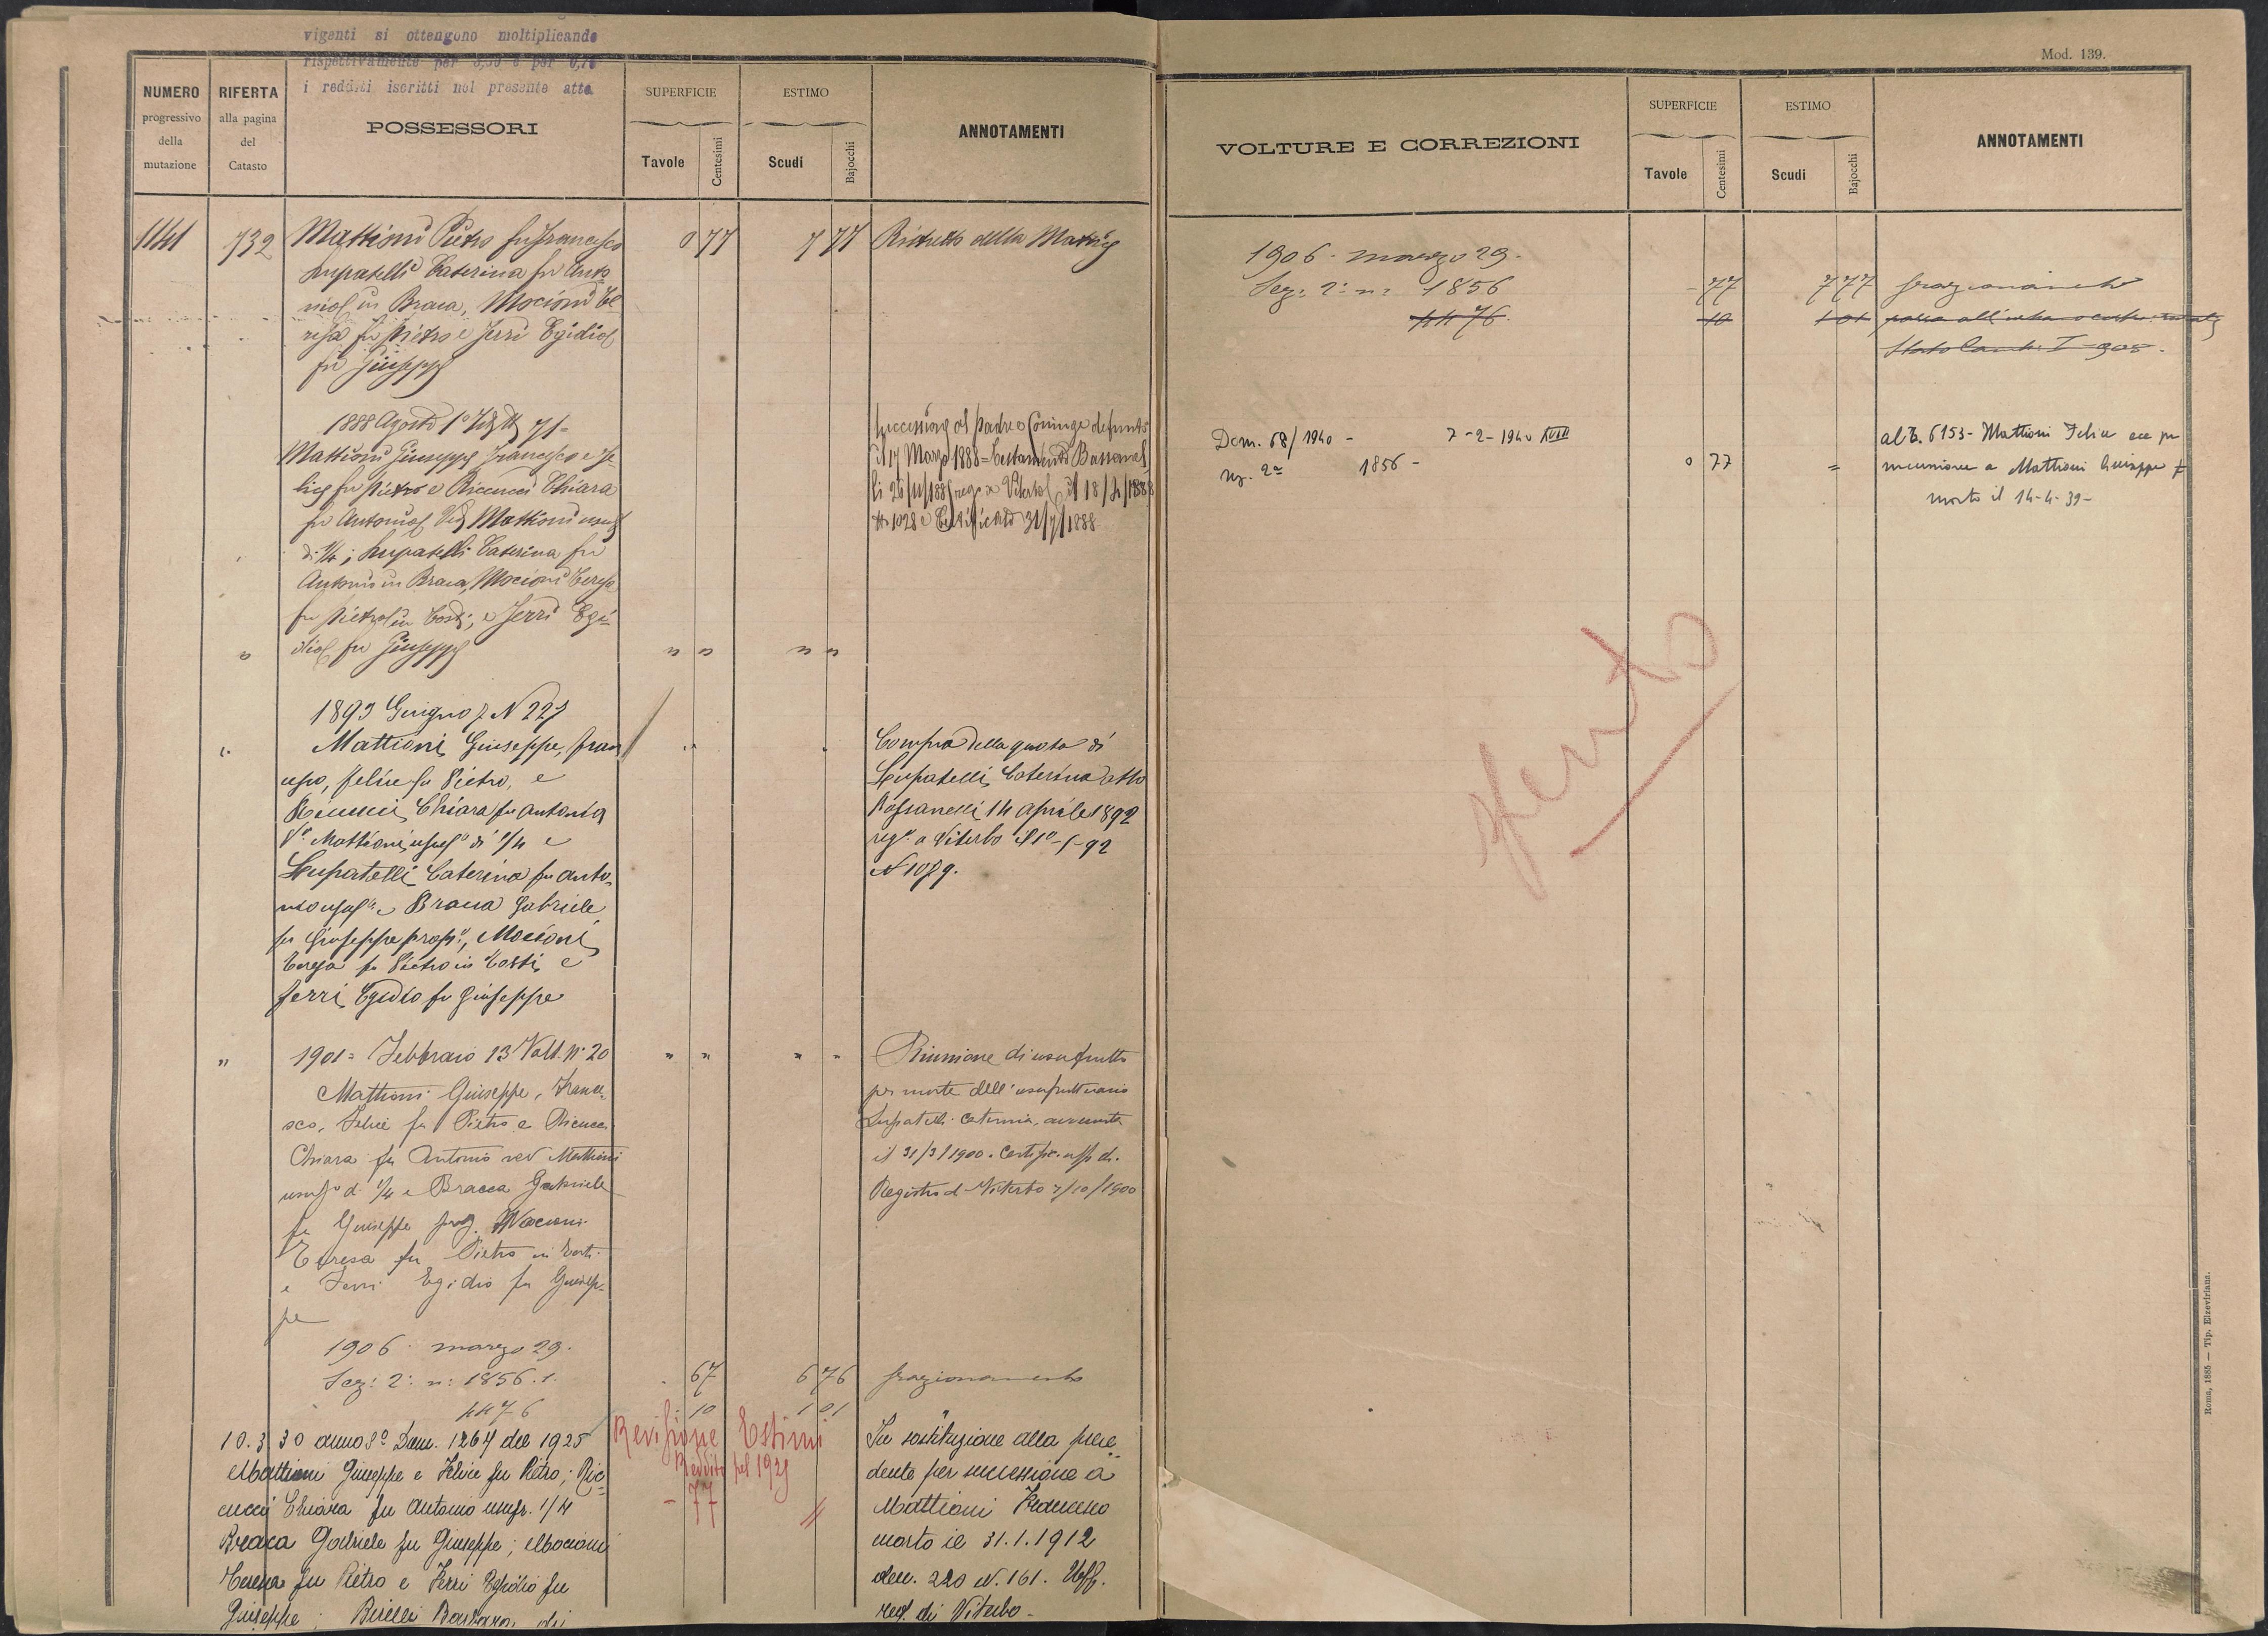 vigenti si ottengono moltiplicando
rispettivamente per
i redditi iscritti nel presente atto
Mod. 139.
NUMERO
progressivo
della
mutazione
RIFERTA
alla pagina
del
Catasto
POSSESSORI
SUPERFICIE
Tavole
Centesimi
ESTIMO
Scudi
Bajocchi
ANNOTAMENTI
1141 732 Mattioni Pietro fu Francesco 0 77 7 77
Lupatelli Caterina fu Anto
nio in Braca, Mocioni Te
resa fu Pietro e Ferri Egidio
fu Giuseppe
1888 Agosto 1° 71
Mattioni Giuseppe Francesco e Fe
lice fu Pietro e Ricucci Chiara
fu Antonio Ved Mattioni usuf
di 1/4; Lupatelli Caterina fu
Antonio in Braca, Mocioni Teresa
fu Pietro in Costi; e Ferri Egi
dio fu Giuseppe
Successione al padre e coniuge defunto
il 17 Marzo 1888 = Testamento
a Viterbo il 18/4/1888
N 1028 e Certificato 31/7/1888
" " " " "
1893 Giugno 7 N 227
Mattioni Giuseppe, Fran
cesco, Felice fu Pietro, e
Ricucci Chiara fu Antonio
Va Mattioni usufa di 1/4 e
Lupatelli Caterina fu Anto
nio usufa e Braca Gabriele
fu Giuseppe propo, Mocioni
Teresa fu Pietro in Costi e
Ferri Egidio fu Giuseppe
Compra della quota di
Lupatelli Caterina atto
14 aprile 1892
rego a Viterbo
" 1901 = Febbraio 13 Volt. N. 20 " " " "
Mattioni Giuseppe, France
sco, Felice fu Pietro e Ricucci
Chiara fu Antonio ved Mattioni
usufo di 1/4 e Bracca Gabriele
fu Giuseppe prop. Mocioni
Teresa fu Pietro in
e Ferri Egidio fu Giusep
pe
Riunione di usufrutto
per morte dell'usufruttuario
Lupatelli Caterina, avvenuta
il 31/3/1900. Certific. uff. di
Registro di Viterbo 7/10/1900
1906 marzo 29.
Sez: 2: n: 1856.1. 67 6 76 frazionamento
4476 10 1 01
Revisione Estimi
10.3.30 anno 8° Dom. 1264 del 1925
Mattioni Giuseppe e Felice fu Pietro; Ric
cucci Chiara fu Antonio usufr. 1/4
Braca Gabriele fu Giuseppe; Mocioni
Teresa fu Pietro e Ferri Egidio fu
Giuseppe;
- 77 //
In sostituzione alla prece
dente per successione a
Mattioni Francesco
morto il 31.1.1912
den. 220 N. 161. Uff.
reg. di Viterbo -
VOLTURE E CORREZIONI
SUPERFICIE
Tavole
Centesimi
ESTIMO
Scudi
Bajocchi
ANNOTAMENTI
1906. marzo 29.
Sez: 2: n: 1856 - 77 7 77 frazionamento
4476. 10 1 01
Dom. 68/1940 - 7-2-1940 XVIII
Sez. 2a 1856 - 0 77 =
al T. 6153 - Mattioni Felice ecc per
successione a Mattioni Giuseppe
morto il 14-4-39-
Roma, 1885 — Tip. Elzeviriana.